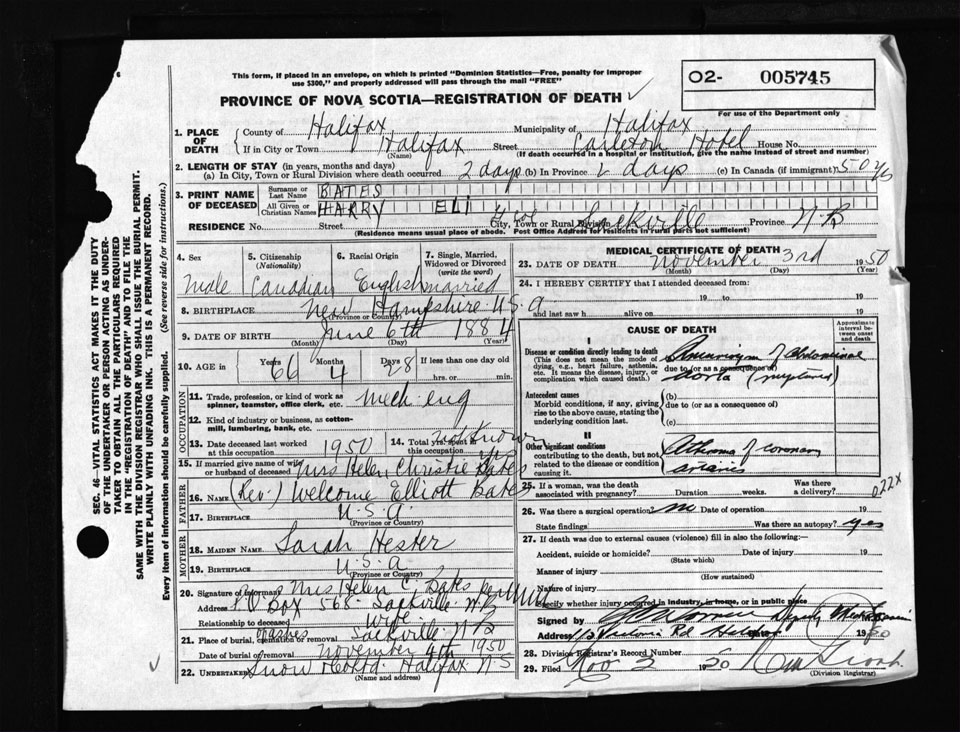 6
This form, if placed in an envelope, on which is printed "Dominion Statistics—Free, penalty for improper
use $300," and properly addressed will pass through the mail "FREE"
02- 005745
PROVINCE OF NOVA SCOTIA—REGISTRATION OF DEATH
For use of the Department only
1. PLACE OF DEATH
County of Halifax Municipality of Halifax
If in City or Town Halifax Street Carleton Hotel House No.
(Name) (If death occurred in a hospital or institution, give the name instead of street and number)
2. LENGTH OF STAY (in years, months and days)
(a) In City, Town or Rural Division where death occurred 2 days (b) In Province 2 days (c) In Canada (if immigrant) 50 yrs
3. PRINT NAME OF DECEASED
Surname or Last Name BATES
All Given or Christian Names HARRY ELI
RESIDENCE No. Street City, Town or Rural Division Sackville Province N.B
(Residence means usual place of abode. Post Office Address for residents in rural parts not sufficient)
4. Sex 5. Citizenship (Nationality) 6. Racial Origin 7. Single, Married, Widowed or Divorced (write the word)
Male Canadian English married
8. BIRTHPLACE New Hampshire U.S.A
(Province or Country)
9. DATE OF BIRTH June 6th 1884
(Month) (Day) (Year)
10. AGE in Years 66 Months 4 Days 28 If less than one day old
hrs. or min.
OCCUPATION
11. Trade, profession, or kind of work as spinner, teamster, office clerk, etc. Mech. eng
12. Kind of industry or business, as cotton-mill, lumbering, bank, etc.
13. Date deceased last worked at this occupation 1950 14. Total yrs spent in this occupation not known
15. If married give name of wife or husband of deceased Mrs Helen Christie Bates
FATHER
16. NAME (Rev.) Welcome Elliott Bates
17. BIRTHPLACE U.S.A.
(Province or Country)
MOTHER
18. MAIDEN NAME Sarah Hester
19. BIRTHPLACE U.S.A.
(Province or Country)
20. Signature of informant Mrs Helen C. Bates
Address P.O Box 568 Sackville N.B
Relationship to deceased wife
21. Place of burial, cremation or removal Sackville N B
Date of burial or removal November 4th 1950
22. Undertaker Snow & Co Ltd. Halifax N S
(Name and address)
MEDICAL CERTIFICATE OF DEATH
23. DATE OF DEATH November 3rd 1950
(Month) (Day) (Year)
24. I HEREBY CERTIFY that I attended deceased from:
19 to 19
and last saw h alive on 19
CAUSE OF DEATH
Approximate interval between onset and death
I
Disease or condition directly leading to death
(This does not mean the mode of dying, e.g., heart failure, asthenia, etc. It means the disease, injury, or complication which caused death.)
Aneurism of Abdominal
due to (or as a consequence of)
Aorta (ruptured)
Antecedent causes
Morbid conditions, if any, giving rise to the above cause, stating the underlying condition last.
(b)
due to (or as a consequence of)
(c)
II
Other significant conditions
contributing to the death, but not related to the disease or condition causing it.
Atheroma of coronary
arteries
25. If a woman, was the death associated with pregnancy? Duration weeks. Was there a delivery?
022X
26. Was there a surgical operation? no Date of operation 19
State findings Was there an autopsy? yes
27. If death was due to external causes (violence) fill in also the following:
Accident, suicide or homicide? Date of injury 19
(State which)
Manner of injury
(How sustained)
Nature of injury
Specify whether injury occurred in industry, in home, or in public place
Signed by Deputy
Address Rd Halifax 1950
28. Division Registrar's Record Number
29. Filed Nov 3 1950
(Division Registrar)
SEC. 46—VITAL STATISTICS ACT MAKES IT THE DUTY
OF THE UNDERTAKER OR PERSON ACTING AS UNDER-
TAKER TO OBTAIN ALL THE PARTICULARS REQUIRED
IN THE "REGISTRATION OF DEATH" AND TO FILE THE
SAME WITH THE DIVISION REGISTRAR WHO SHALL ISSUE THE BURIAL PERMIT.
WRITE PLAINLY WITH UNFADING INK. THIS IS A PERMANENT RECORD.
Every item of information should be carefully supplied. (See reverse side for instructions.)